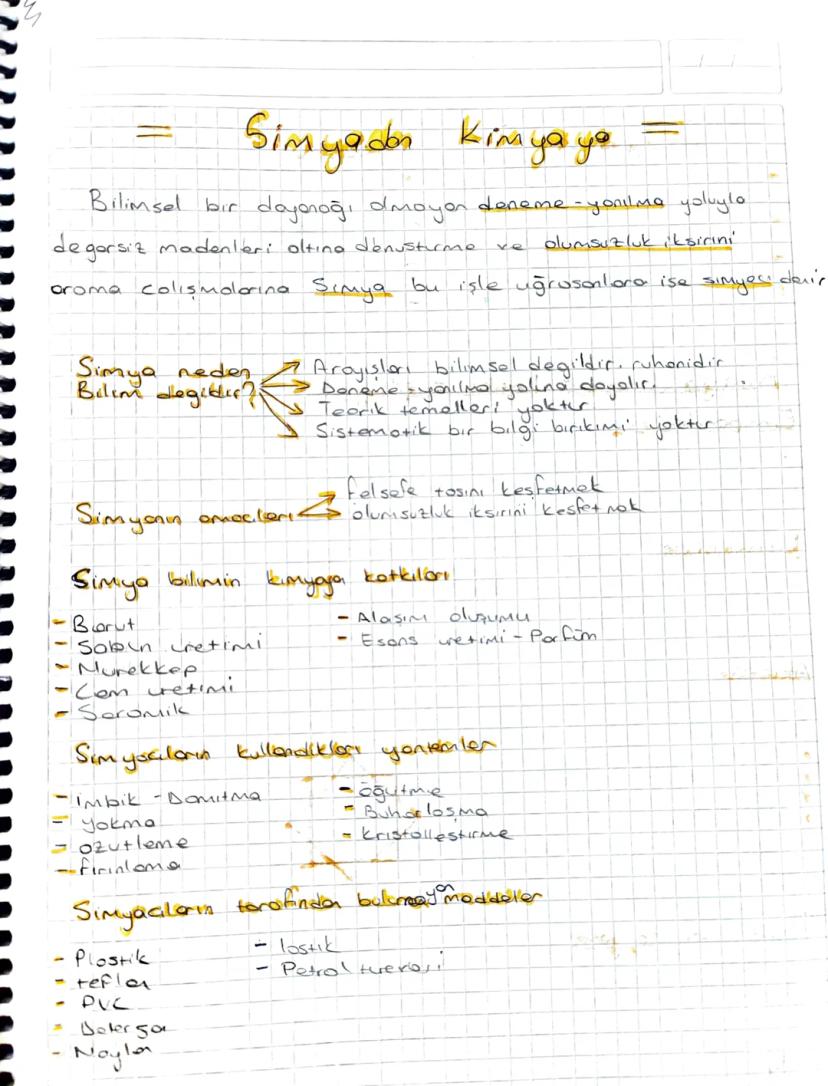 = Simyadan Kimyaya =
Bilimsel bir dayanağı olmayan deneme-yanılma yoluyla
degersiz madenleri altına dönusturme ve olumsuzluk iksirini
arama calışmalarına Simya bu işle uğrasanlara ise simyacı denir
Simya neden
Bilim degildir?
Arayışları bilimsel degildir. ruhanidir
Deneme-yanılma yoluna dayalır.
Teorik temelleri yoktur
Sistematik bir bilgi birikimi yoktur
Simyanın amacları
felsefe tasını keşfetmek
olumsuzluk iksirini kesfetmek
Simya bilimin kimyaya katkıları
- Barut
- Sabun uretimi
- Murekkep
- Cam uretimi
- Seramik
- Alaşım oluşumu
- Esans uretimi - Parfüm
Simyacıların kullandıkları yontemler
- imbik - Damıtma
- Yakma
- ozutleme
- fırınlama
- öğutme
- Buharlaşma
- kristalleştirme
Simyacıların tarafından bulunmayan maddeler
- Plastik
- teflon
- PVC
- Deterjan
- Naylon
- lastik
- Petrol turevi